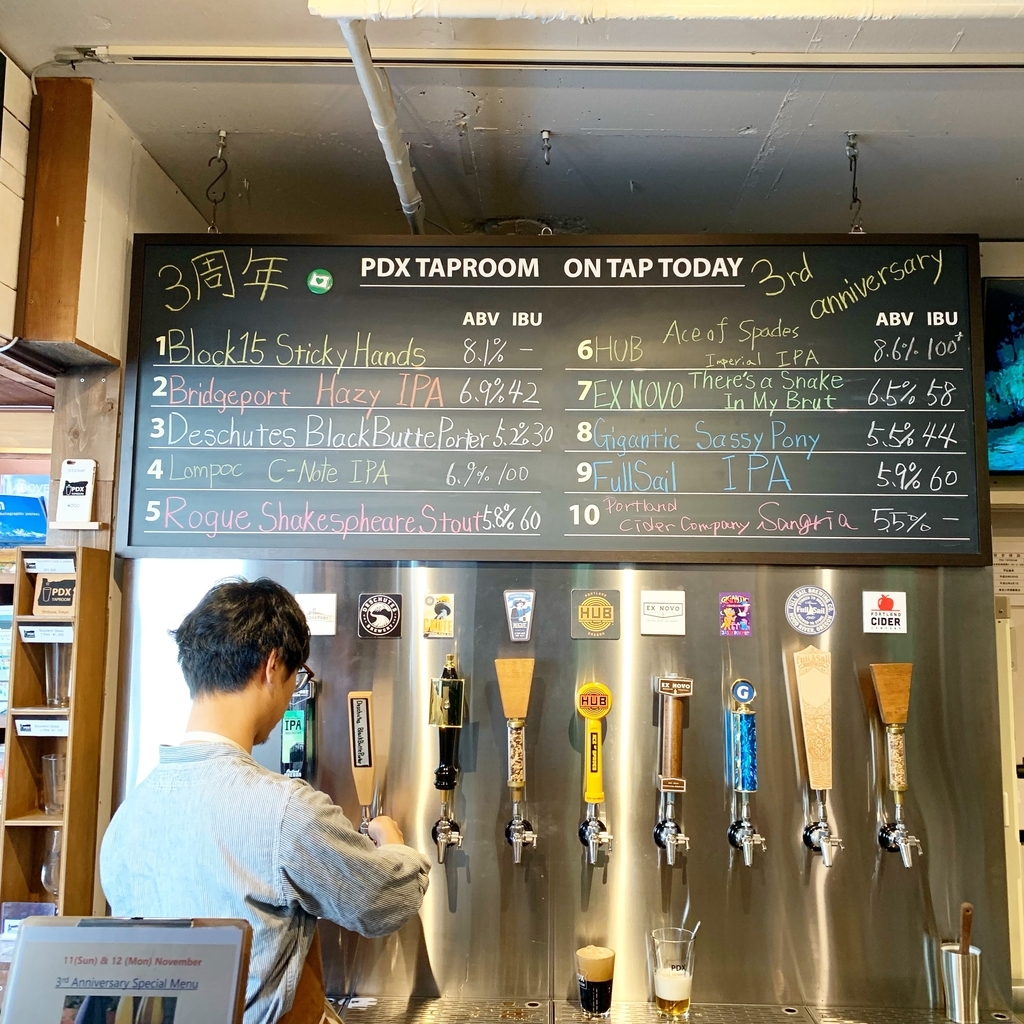 3周年 PDX TAPROOM ON TAP TODAY 3rd anniversary
ABV IBU
1 Block15 Sticky Hands 8.1% -
2 Bridgeport Hazy IPA 6.9% 42
3 Deschutes BlackButtePorter 5.2% 30
4 Lompoc C-Note IPA 6.9% 100
5 Rogue Shakespheare Stout 5.8% 60
ABV IBU
6 HUB Ace of Spades
Imperial IPA 8.6% 100+
7 EX NOVO There's a Snake
In My Brut 6.5% 58
8 Gigantic Sassy Pony 5.5% 44
9 FullSail IPA 5.9% 60
10 Portland
Cider Company Sangria 5.5% -
DESCHUTES
BREWERY
HUB
EX NOVO
GIGANTIC
FULL SAIL BREWING CO.
Full Sail
PORTLAND
CIDER
COMPANY
IPA
Deschutes BlackButtePorter
HUB
EX NOVO
G
PDX
TAPROOM
PDX
PDX
11(Sun) & 12 (Mon) November
3rd Anniversary Special Menu